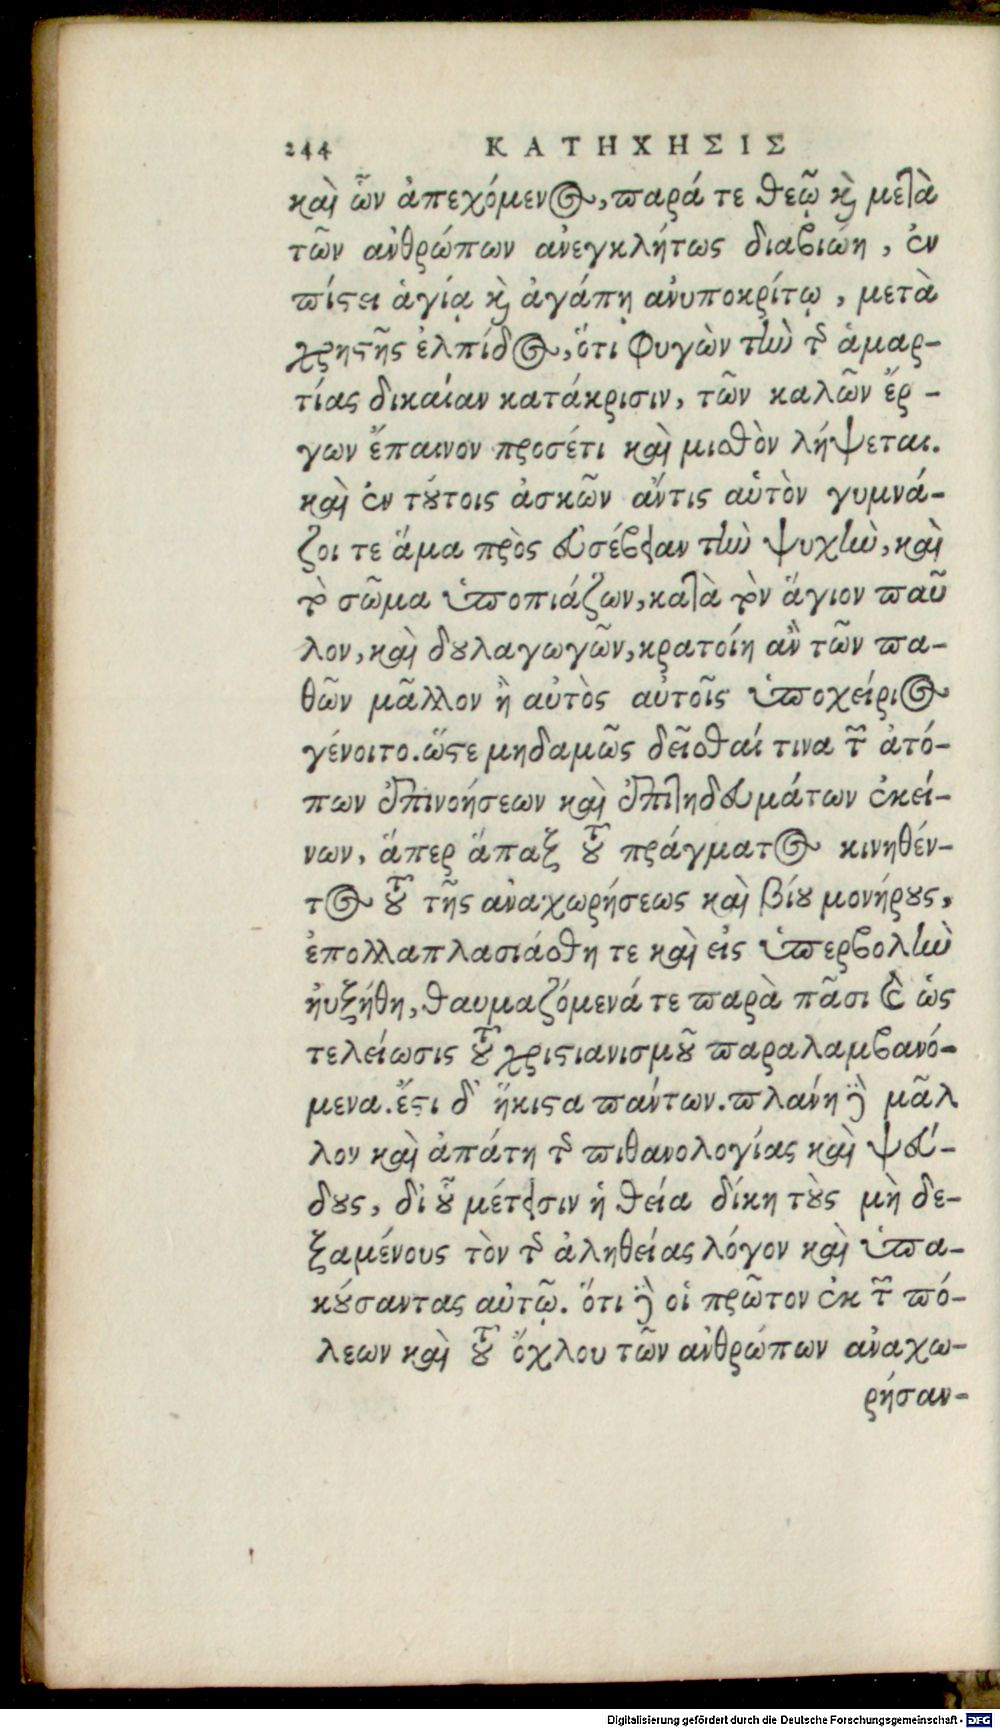 244 ΚΑΤΗΧΗΣΙΣ
καὶ ὧν ἀπεχόμενος, παρά τε θεῷ καὶ μετὰ
τῶν ἀνθρώπων ἀνεγκλήτως διαβιώη, ἐν
πίστει ἁγίᾳ καὶ ἀγάπῃ ἀνυποκρίτῳ, μετὰ
χρηστῆς ἐλπίδος, ὅτι φυγὼν τὴν τῆς ἁμαρ-
τίας δικαίαν κατάκρισιν, τῶν καλῶν ἔρ-
γων ἔπαινον προσέτι καὶ μισθὸν λήψεται.
καὶ ἐν τούτοις ἀσκῶν ἄντις αὑτὸν γυμνά-
ζοι τε ἅμα πρὸς εὐσέβειαν τὴν ψυχὴν, καὶ
τὸ σῶμα ὑποπιάζων, κατὰ τὸν ἅγιον παῦ
λον, καὶ δουλαγωγῶν, κρατοίη ἂν τῶν πα-
θῶν μᾶλλον ἢ αὐτὸς αὐτοῖς ὑποχείριος
γένοιτο. ὥστε μηδαμῶς δεῖσθαί τινα τῶν ἀτό-
πων ἐπινοήσεων καὶ ἐπιτηδευμάτων ἐκεί-
νων, ἅπερ ἅπαξ τοῦ πράγματος κινηθέν-
τος τοῦ τῆς ἀναχωρήσεως καὶ βίου μονήρους,
ἐπολλαπλασιάσθη τε καὶ εἰς ὑπερβολὴν
ηὐξήθη, θαυμαζόμενά τε παρὰ πᾶσι καὶ ὡς
τελείωσις τοῦ χριστιανισμοῦ παραλαμβανό-
μενα. ἔστι δ' ἥκιστα πάντων. πλάνη γὰρ μᾶλ
λον καὶ ἀπάτη τῆς πιθανολογίας καὶ ψεύ-
δους, δι' οὗ μέτεισιν ἡ θεία δίκη τοὺς μὴ δε-
ξαμένους τὸν τῆς ἀληθείας λόγον καὶ ὑπα-
κούσαντας αὐτῷ. ὅτι γὰρ οἱ πρῶτον ἐκ τῶν πό-
λεων καὶ τοῦ ὄχλου τῶν ἀνθρώπων ἀναχω-
ρήσαν-
Digitalisierung gefördert durch die Deutsche Forschungsgemeinschaft - DFG